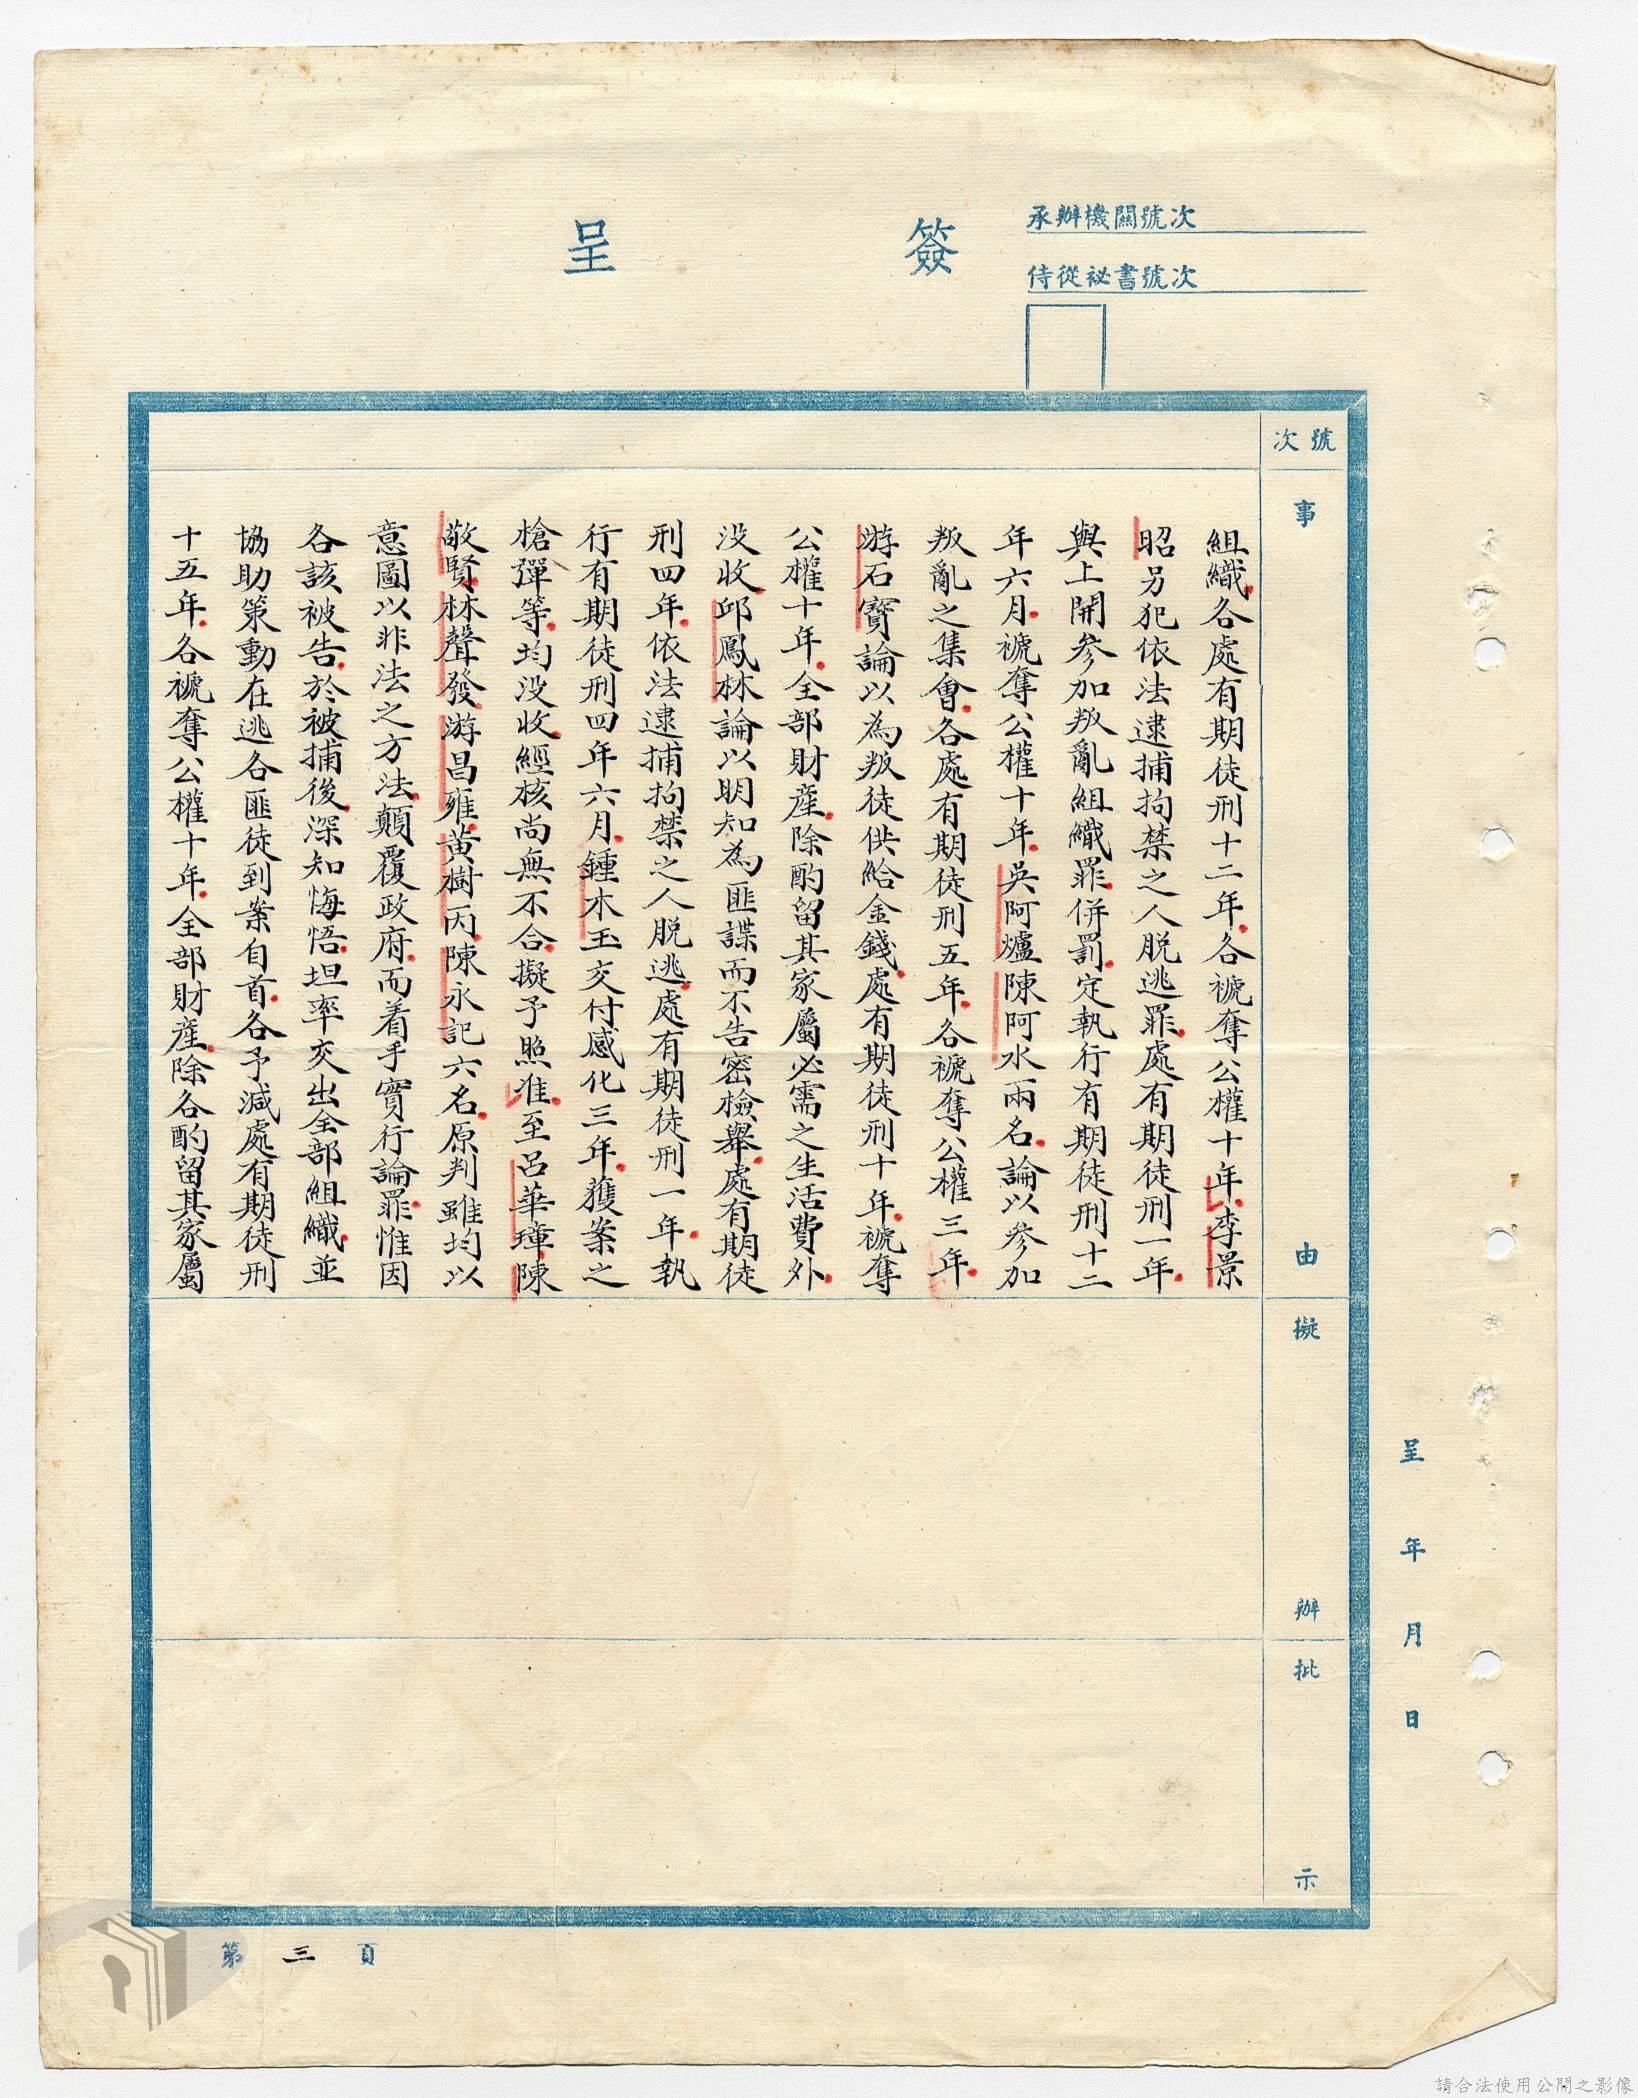 簽呈
承辦機關號次
侍從祕書號次
號次
事由
擬辦
批示
呈 年 月 日
組織各處有期徒刑十二年各褫奪公權十年李景
昭另犯依法逮捕拘禁之人脫逃罪處有期徒刑一年
與上開參加叛亂組織罪併罰定執行有期徒刑十二
年六月褫奪公權十年吳阿爐陳阿水兩名論以參加
叛亂之集會各處有期徒刑五年各褫奪公權三年
游石寶論以為叛徒供給金錢處有期徒刑十年褫奪
公權十年全部財產除酌留其家屬必需之生活費外
沒收邱鳳林論以明知為匪諜而不告密檢舉處有期徒
刑四年依法逮捕拘禁之人脫逃處有期徒刑一年執
行有期徒刑四年六月鍾木玉交付感化三年獲案之
槍彈等均沒收經核尚無不合擬予照准至呂華璋陳
敬賢林聲發游昌雍黃樹丙陳永記六名原判雖均以
意圖以非法之方法顛覆政府而着手實行論罪惟因
各該被告於被捕後深知悔悟坦率交出全部組織並
協助策動在逃各匪徒到案自首各予減處有期徒刑
十五年各褫奪公權十年全部財產除各酌留其家屬
第三頁
請合法使用公開之影像